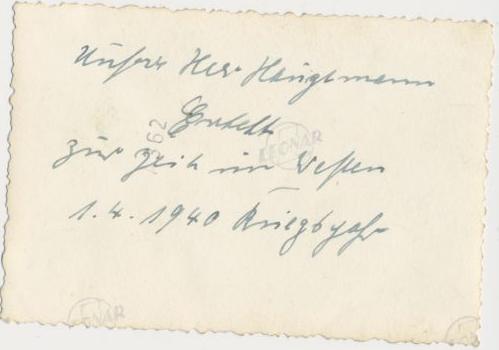 Unser Herr Hauptmann
zur Zeit im Westen
1.4.1940 Kriegsjahr
62
LEONAR